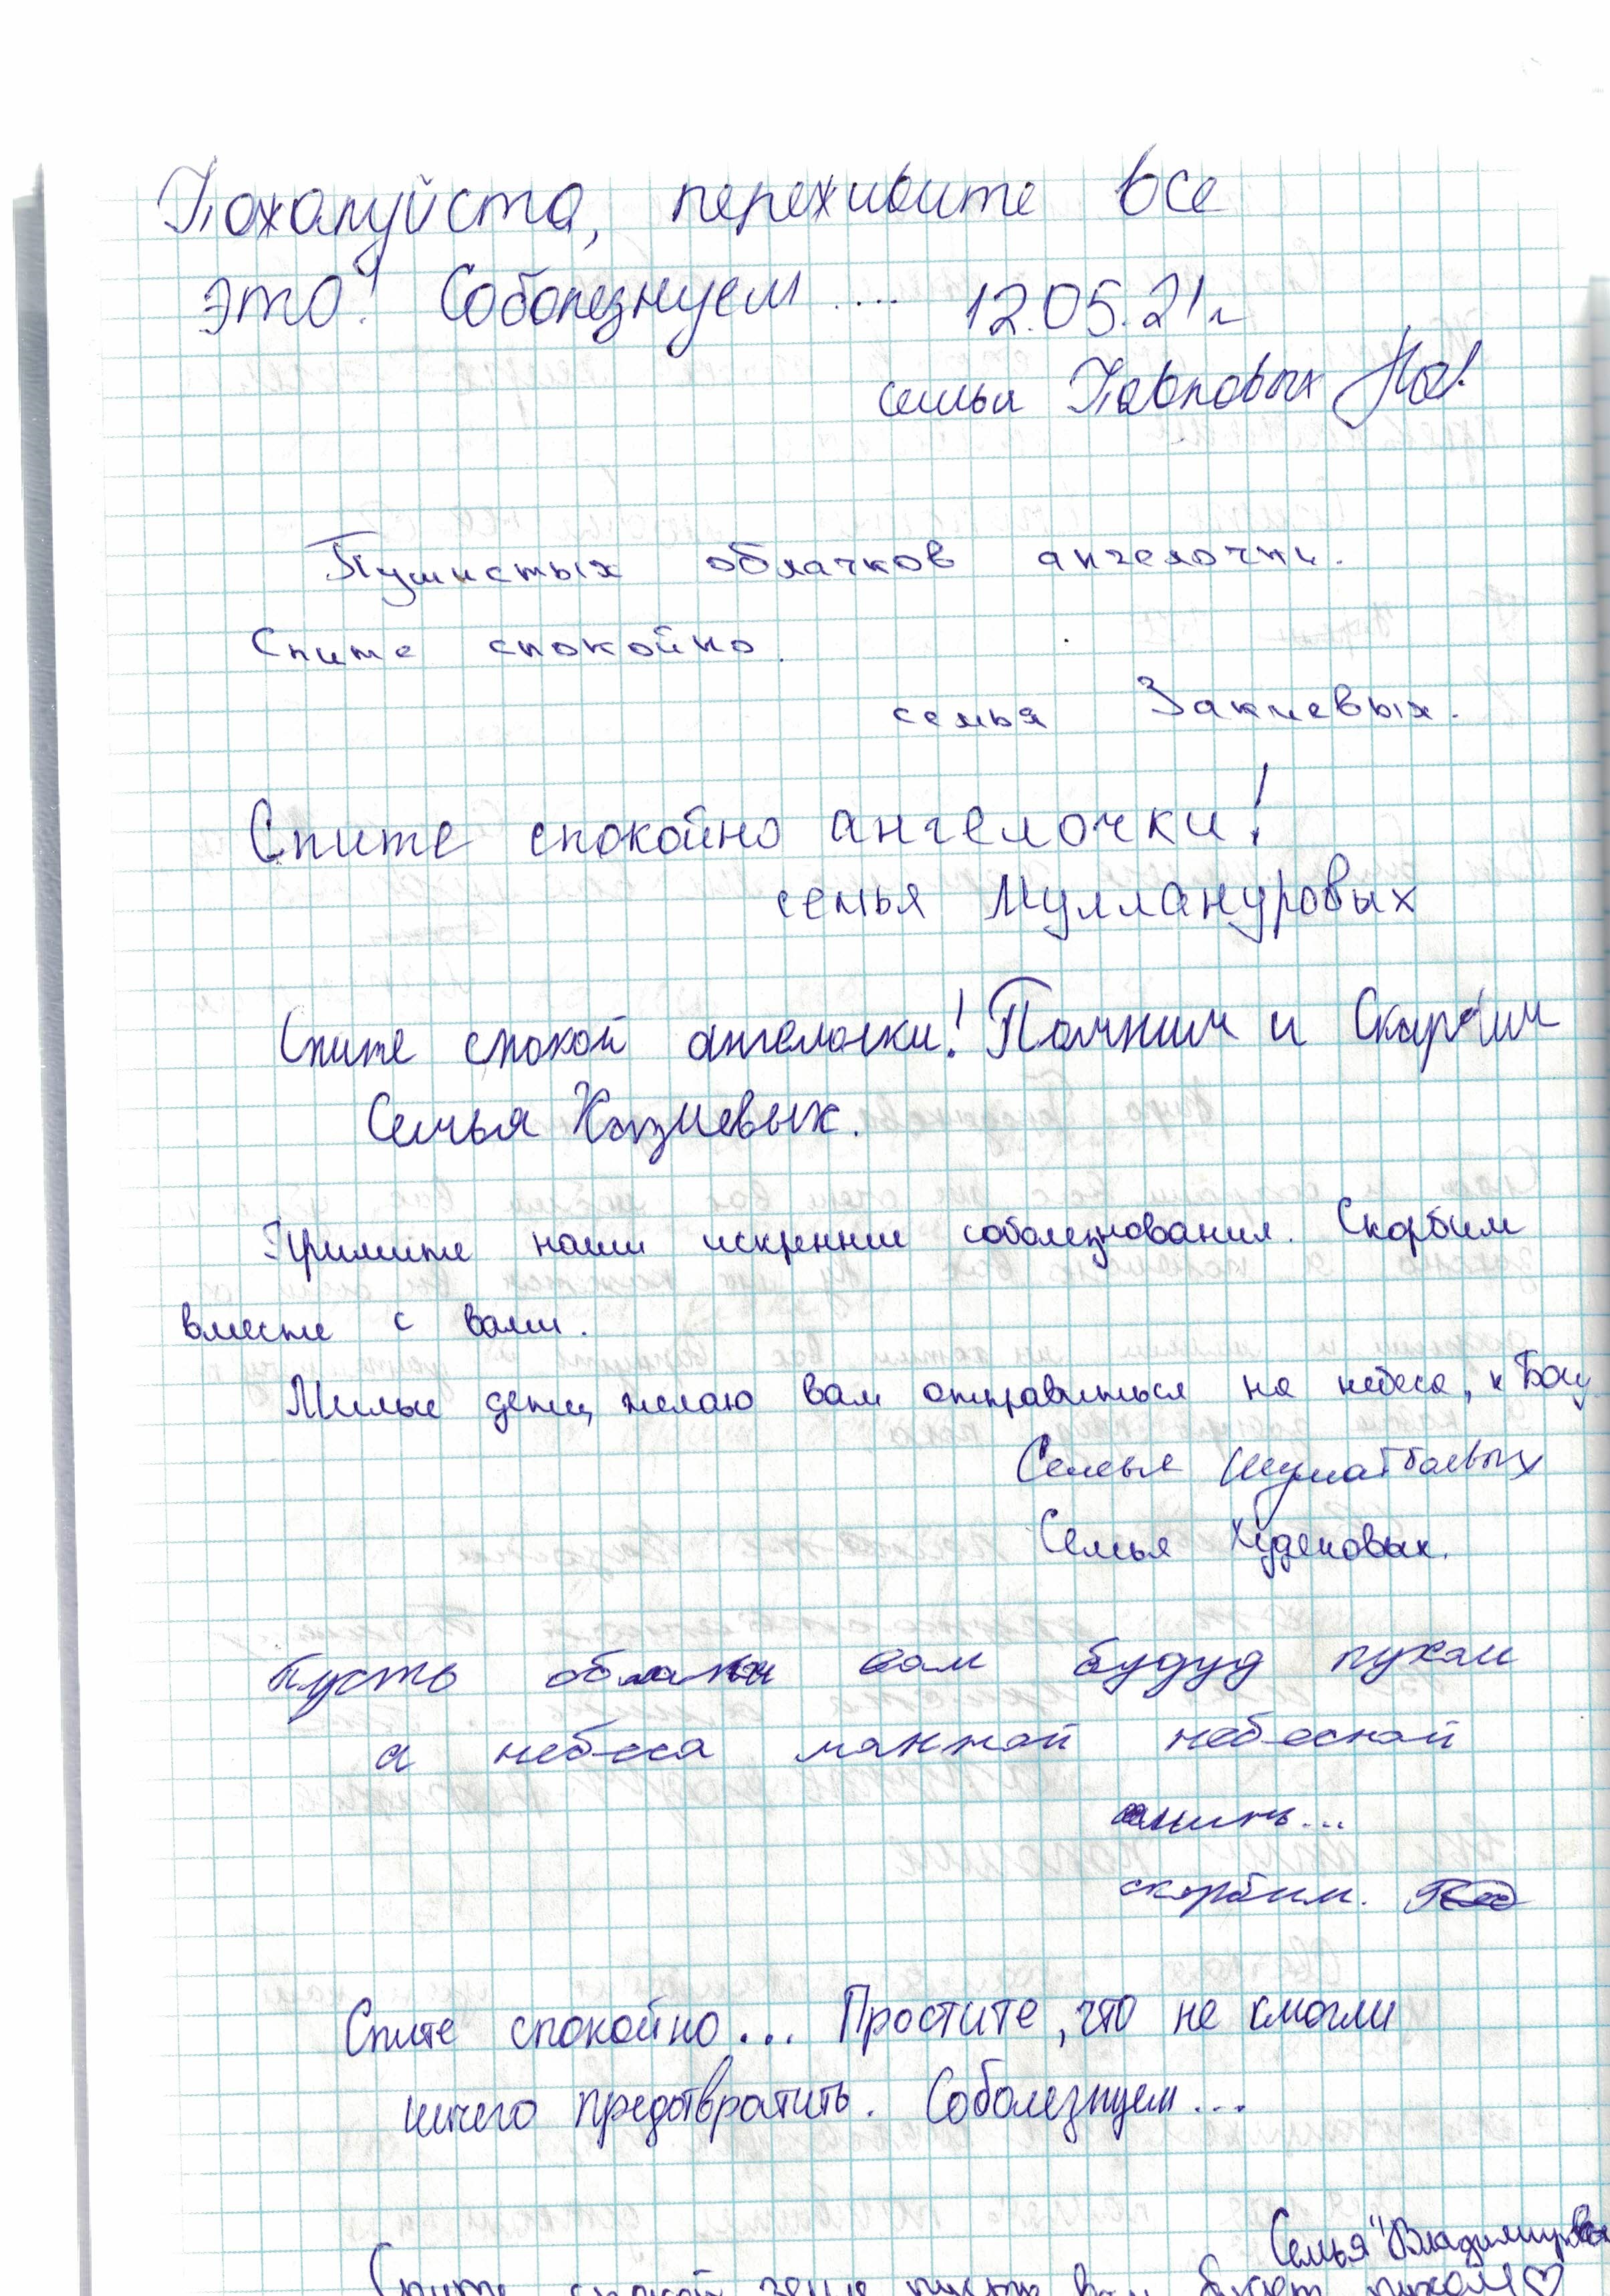 Пожалуйста, переживите все
это! Соболезнуем .... 12.05.21г
семья Павловых
Пушистых облачков ангелочки.
Спите спокойно.
семья Закиевых.
Спите спокойно ангелочки!
семья Муллануровых
Спите спокой ангелочки! Помним и Скорбим
Семья Казиевых.
Примите наши искренние соболезнования. Скорбим
вместе с вами.
Милые дети, желаю вам отправиться на небеса, к Богу.
Семья
Семья Худяковых.
Пусть облака вам будуд пухом
а небеса манной небесной
аминь...
скорбим.
Спите спокойно... Простите, что не смогли
ничего предотвратить. Соболезнуем...
Семья "Владимировых
Спите спокой земля пусть вам будет пухом♡